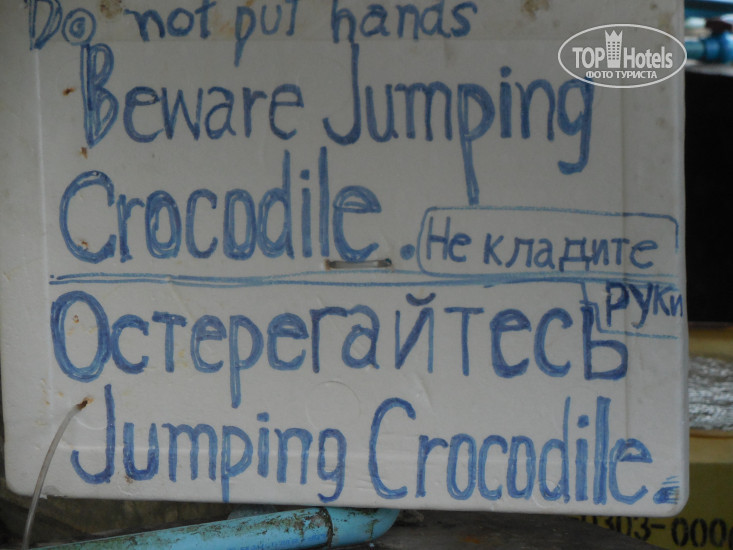 Do not put hands
TOP Hotels
ФОТО ТУРИСТА
Beware Jumping
Crocodile.
Не кладите
руки
Остерегайтесь
Jumping Crocodile.